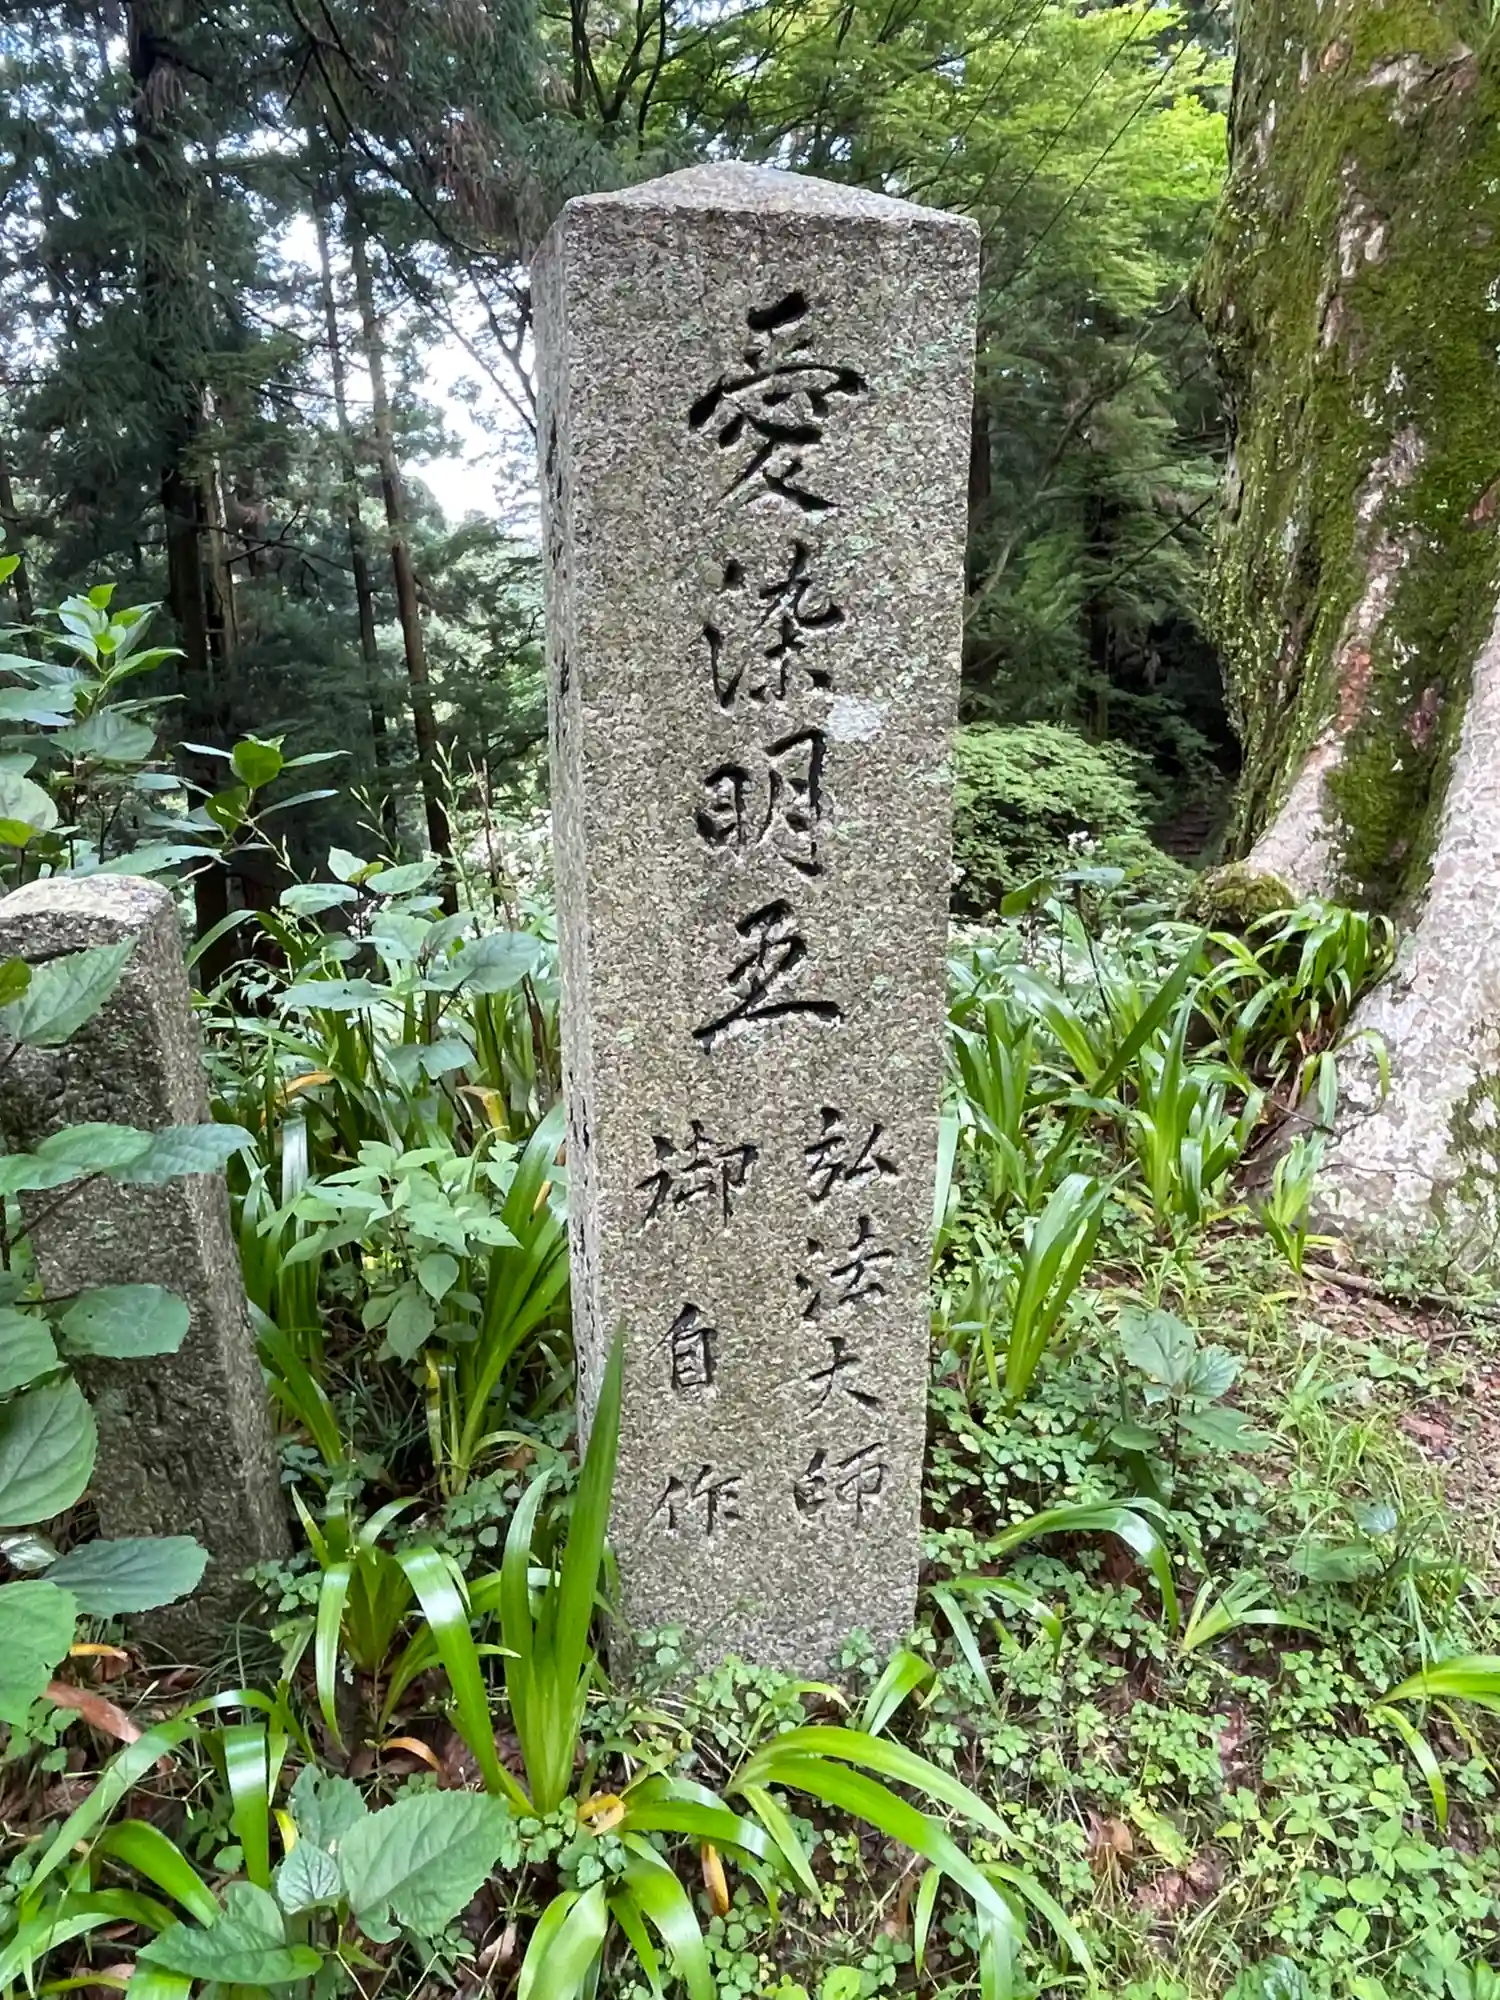 愛染明王
弘法大師
御自作